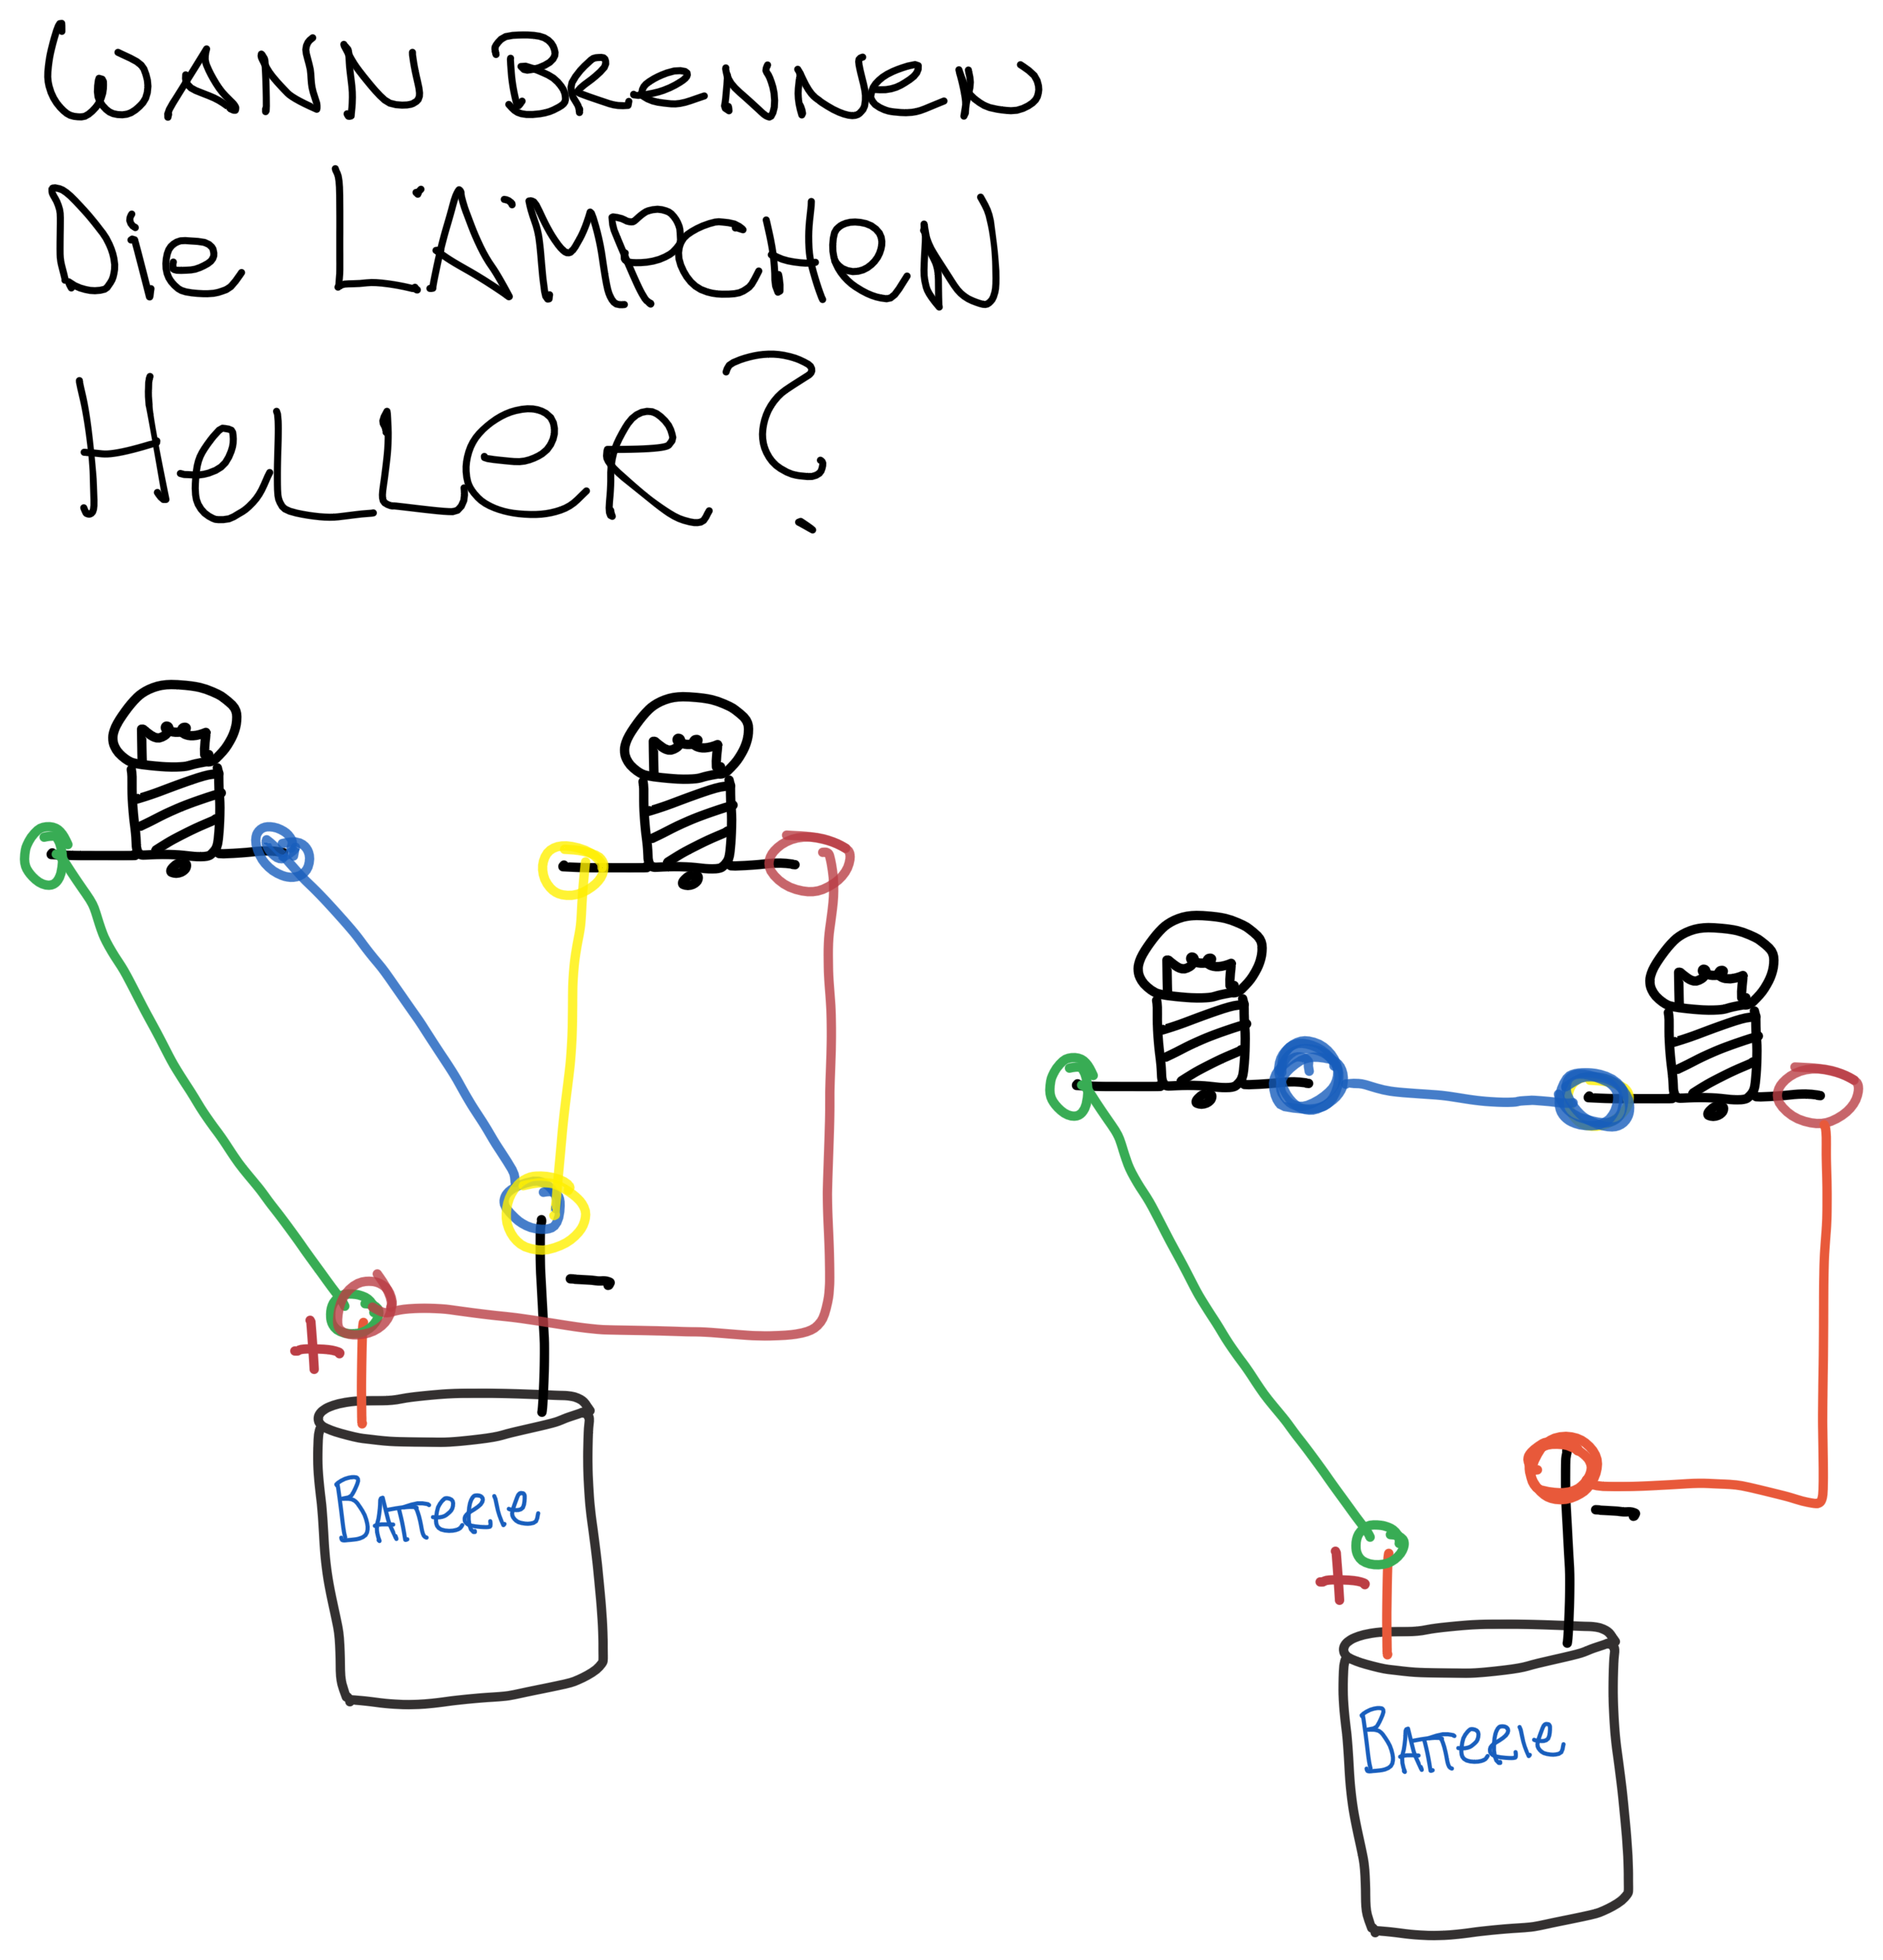 WANN BRENNEN
Die LÄMPCHEN
HeLLER?
-
+
BATTERIE
-
+
BATTERIE